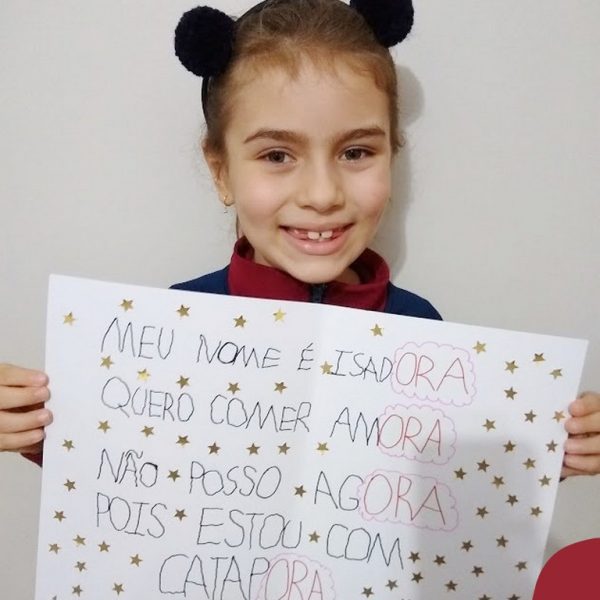 MEU NOME É ISADORA
QUERO COMER AMORA
NÃO POSSO AGORA
POIS ESTOU COM
CATAPORA